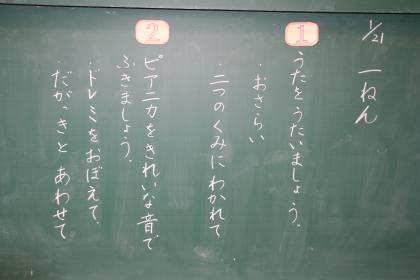 1/21 一ねん
1
うたをうたいましょう。
・おさらい
・二つのくみにわかれて
2
ピアニカをきれいな音で
ふきましょう。
・ドレミをおぼえて
・だがっきとあわせて